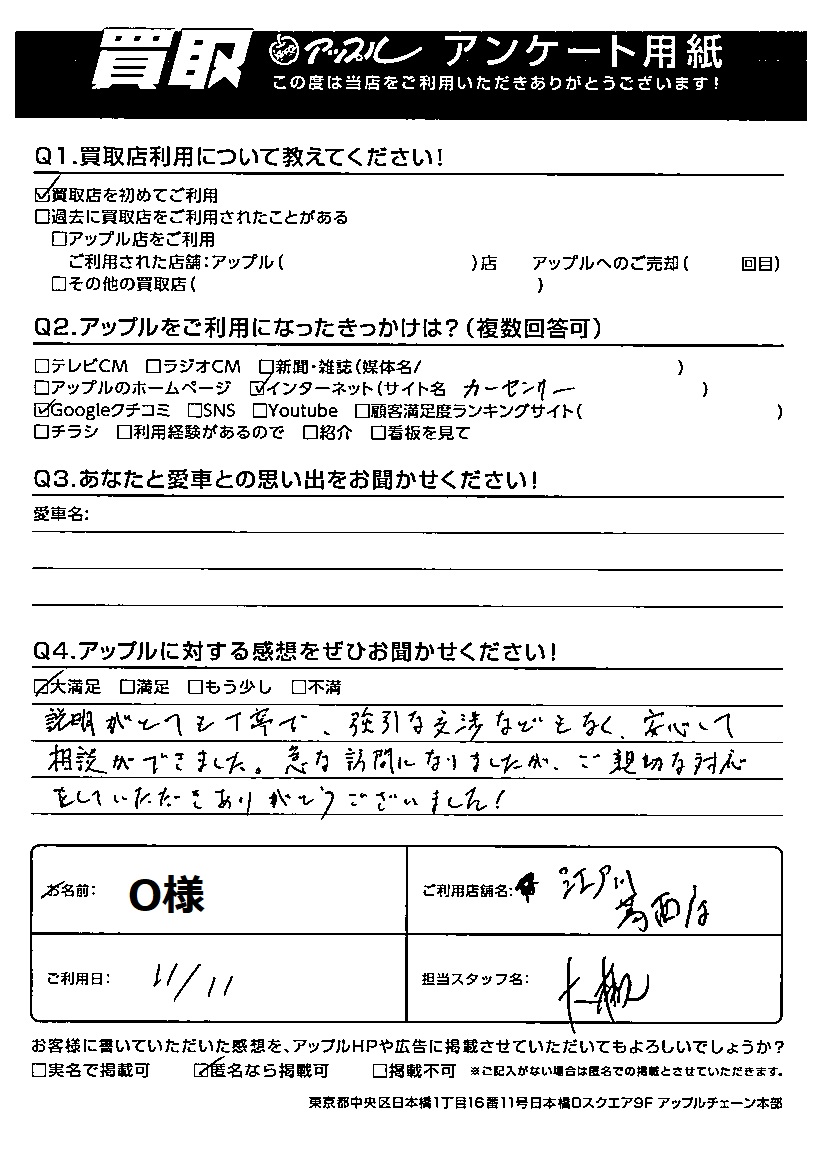 買取 アップル アンケート用紙
この度は当店をご利用いただきありがとうございます！
Q1.買取店利用について教えてください！
☑買取店を初めてご利用
□過去に買取店をご利用されたことがある
□アップル店をご利用
ご利用された店舗：アップル（　）店　アップルへのご売却（　回目）
□その他の買取店（　）
Q2.アップルをご利用になったきっかけは？（複数回答可）
□テレビCM □ラジオCM □新聞・雑誌（媒体名/　）
□アップルのホームページ ☑インターネット（サイト名 カーセンサー　）
☑Googleクチコミ □SNS □Youtube □顧客満足度ランキングサイト（　）
□チラシ □利用経験があるので □紹介 □看板を見て
Q3.あなたと愛車との思い出をお聞かせください！
愛車名：
Q4.アップルに対する感想をぜひお聞かせください！
☑大満足 □満足 □もう少し □不満
説明がとても丁寧で、強引な交渉などもなく、安心して
相談ができました。急な訪問になりましたが、ご親切な対応
をしていただきありがとうございました！
お名前： O様
ご利用店舗名： 江戸川
葛西店
ご利用日： 11/11
担当スタッフ名：
お客様に書いていただいた感想を、アップルHPや広告に掲載させていただいてもよろしいでしょうか？
□実名で掲載可 ☑匿名なら掲載可 □掲載不可 ※ご記入がない場合は匿名での掲載とさせていただきます。
東京都中央区日本橋1丁目16番11号日本橋Dスクエア9F アップルチェーン本部